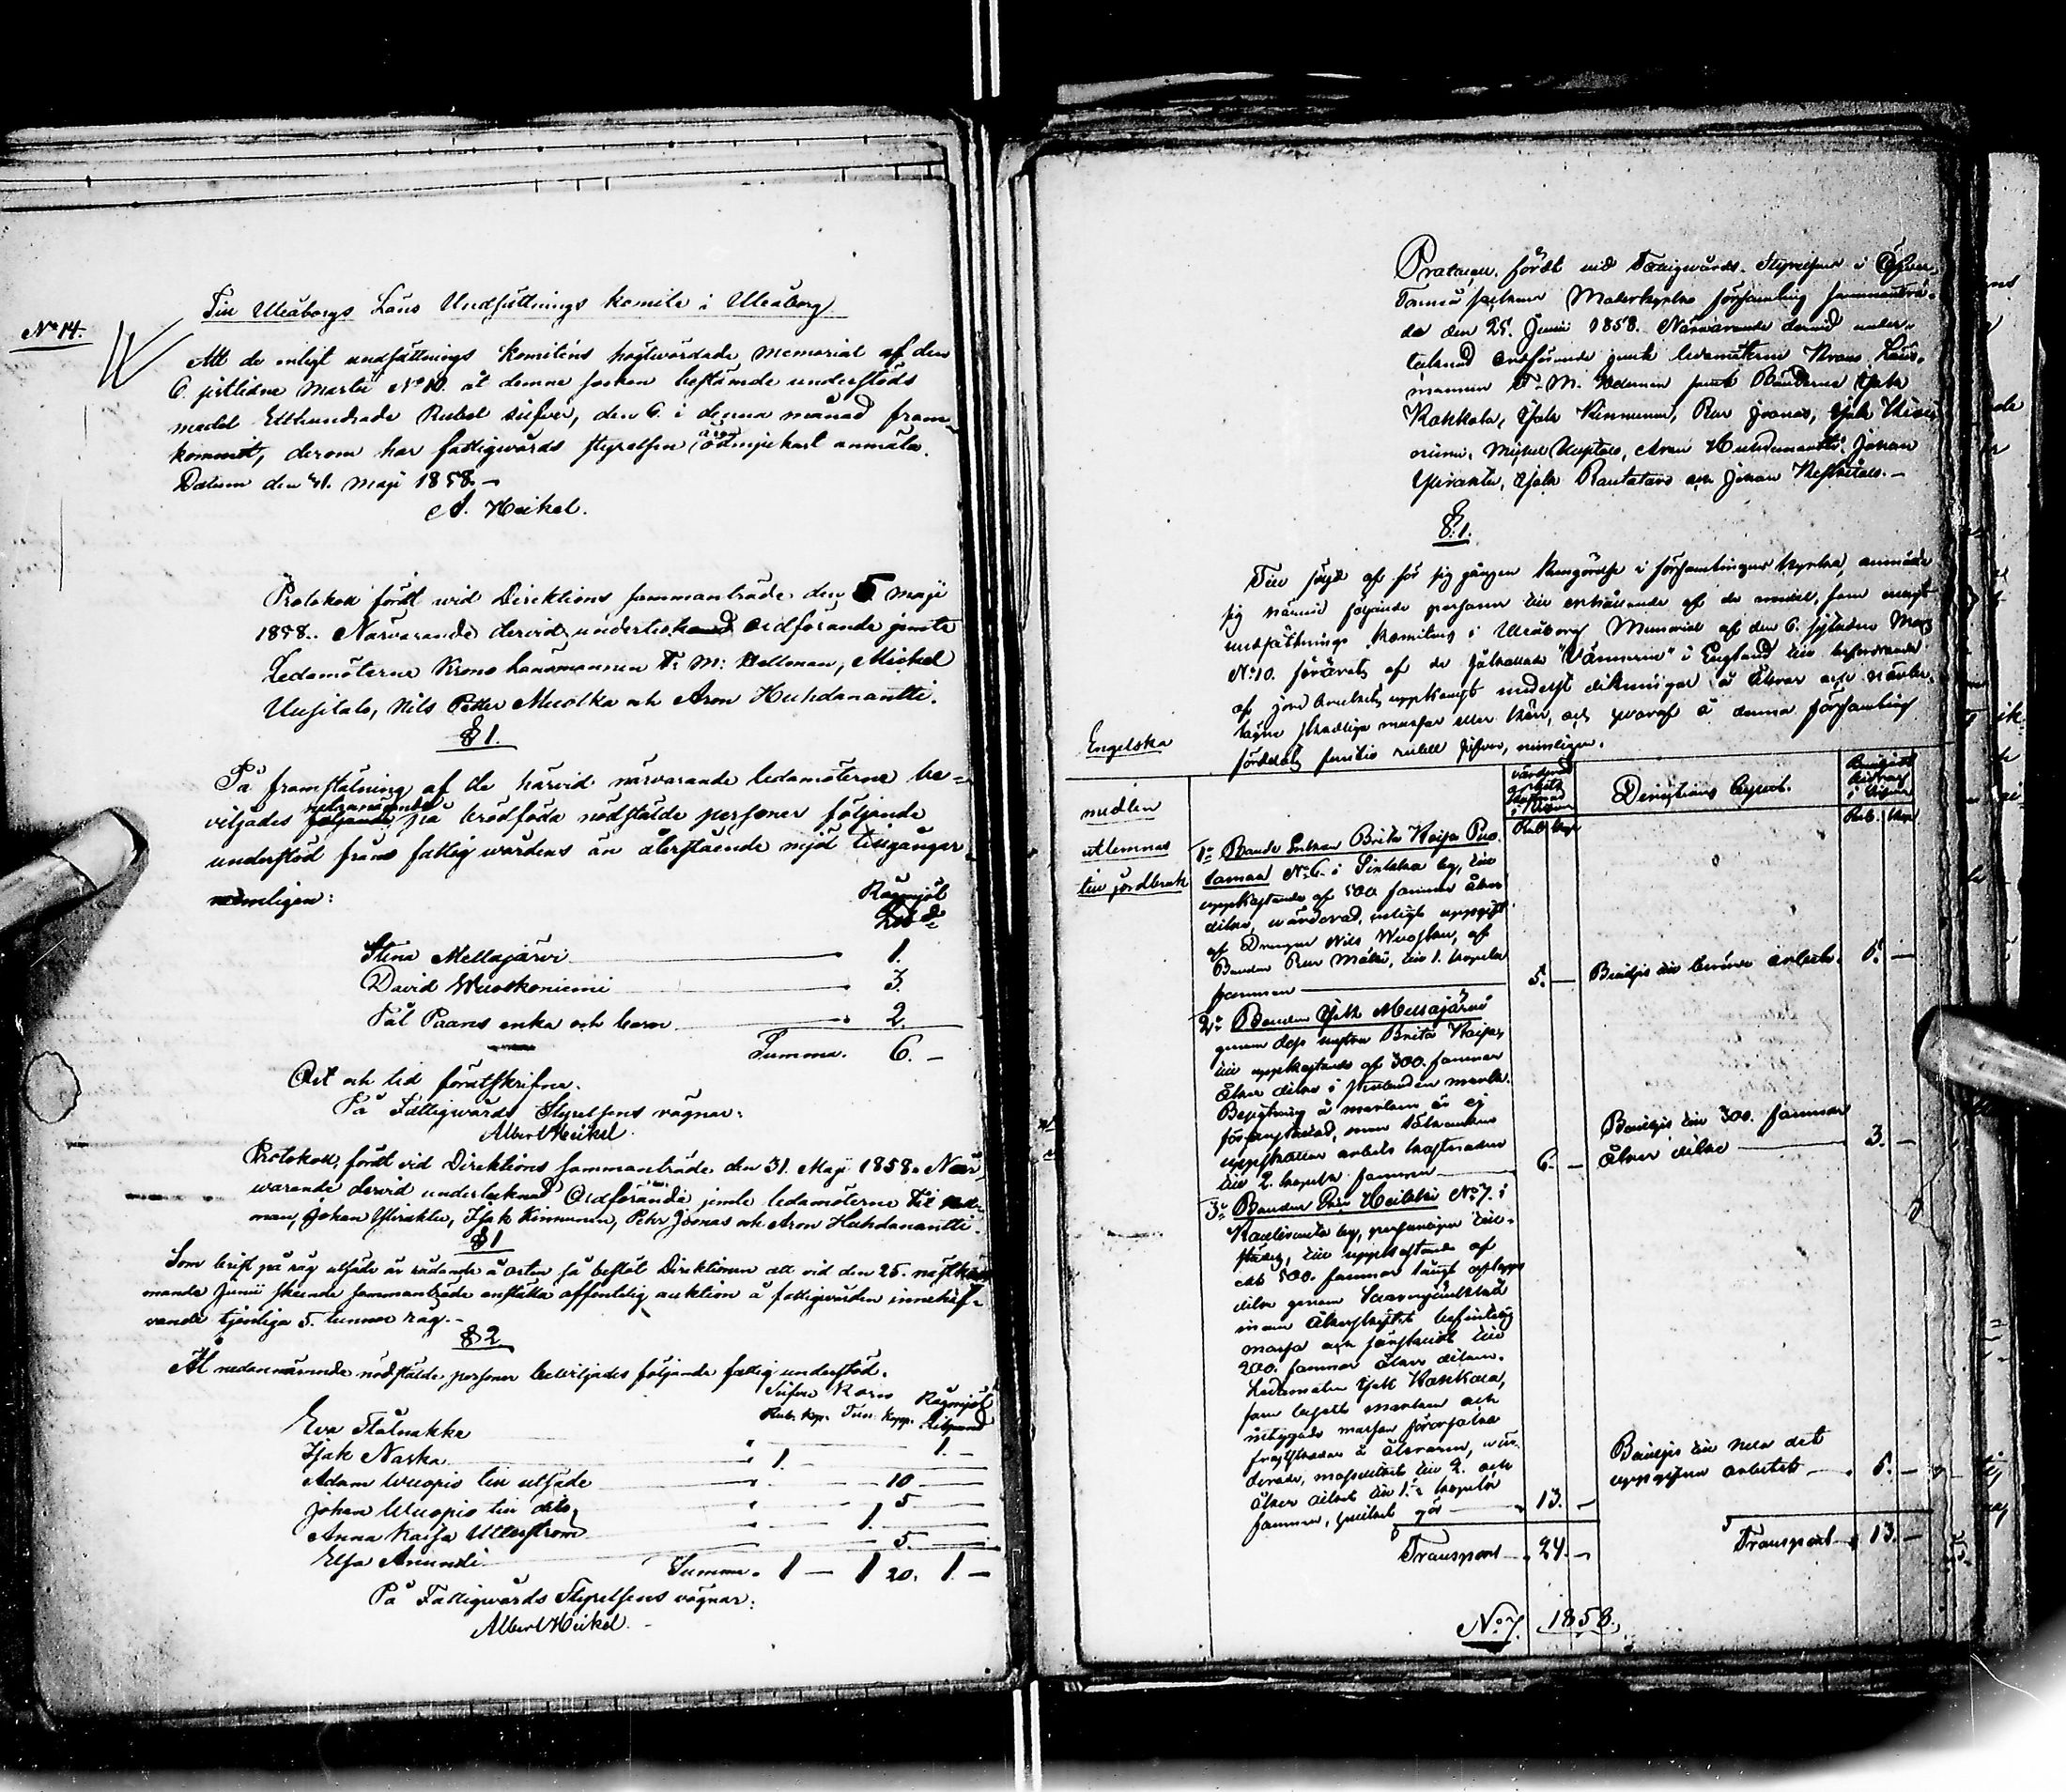 Till Uleåborgs Läns Undsättnings komité i Uleåborg
No 14.
Att de enligt undsättnings Komiténs högtvördade Memorial af den
6. sistlidne Martii No 10. åt denna socken bestämde understöds
medel Etthundrade Rubel silfver, den 6. i denna månad fram-
kommit, derom har fattigvårds styrelsen äran ödmjukast anmäla.
Datum den 31. Maji 1858. -
A. Heikel.
Protokoll fördt vid Direktions sammanträde den 5 Maji
1858. Närvarande dervid undertecknad Ordförande jemte
Ledamöterne Krono Länsmannen F. M. Hellman, Mickel
Uusitalo, Nils Petter Muotka och Aron Huhdanantti.
§ 1.
På framställning af de härvid närvarande ledamöterne be-
viljades nedannämnde på brödföda nödstälde personer följande
understöd från fattigvårdens än återstående mjöl tillgångar
nemligen:
Rågmjöl
L℔
Stina Mellajärvi 1.
David Wuoskoniemi 3.
Pål Paans enka och barn 2.
Summa. 6. -
Ort och tid förutskrifne.
På Fattigvårds Styrelsens vägnar:
Albert Heikel.
Protokoll, fördt vid Direktions sammanträde den 31. Maji 1858. När
varande dervid undertecknad Ordförande jemte ledamöterne
man, Johan Yliraktu, Isak Kinnunen, Pehr Joonas och Aron Huhdanantti.
§ 1
Som brist på råg utsäde är rådande å orten så beslöt Direktionen att vid den 25. nästkom
mande Junii skeende sammanträde anställa offentlig auktion å fattigvården innehaf-
vande tjenliga 5. tunnor råg. -
§ 2
Åt nedannämnde nödstälde personer beviljades följande fattig understöd.
Silfver Korn Rågmjöl
Rub. Kop. Tun. Kapp. Lispund
Eva Stålnakke 1. -
Isak Naska 1. -
Adam Wuopio till utsäde 10
Johan Wuopio till dito 5
Anna Kaisa Ullerström 1.
Elsa Anundi 5.
Summa. 1 - 1 20. 1. -
På Fattigvårds Styrelsens vägnar:
Albert Heikel. -
Protocoll, fördt vid Fattigvårds Styrelsens i Öfver
Torneå sockens Moderkyrko församling sammanträ-
de den 25. Junii 1858. Närvarande dervid under-
tecknad Ordförande jemte ledamöterne Krono Läns-
mannen F. M. Hellman samt Bönderne Isak
Kokkola, Isak Kinnunen, Per Joonas, Isak
niemi, Mickel Uusitalo, Aron Huhdanantti, Johan
Yliraktu, Isak Rautatavo och Johan
§. 1.
Till följd af för sig gången kungörelse i församlingens kyrka, anmälde
sig härvid följande personer till erhållande af de medel, som enligt
undsättnings Komiténs i Uleåborg Memorial af den 6. sistledne Mars
No 10. förärats af de så kallade "Vännerna" i England till befordrande
af jord brukets uppkomst medelst dikningar å åkrar och
skadliga mossar eller kärr, och hvaraf å denna församling
fördelats femtio rubel silfver, nemligen.
Engelska
medlen
utlemnas
till jordbruk
värderad
arbets
kostnad
i silfver
Rub Kop
Direktions beslut.
Beviljadt
bidrag
i silfver
Rub. Kop
1o Bonde Enkan Brita Kaisa
No 6. i by, till
upptagande af 500 famnar åker
diken, värderad, enligt uppgift
af Drengen Nils Wuopio, af
Bonden Per Mäki, till 1. kopek
famnen 5. -
Beviljas till berörde arbete. 5. -
2o Bonden Isak Mellajärvi
genom dess hustru Brita Kaisa,
till upptagande af 300. famnar
åker diken i marken.
Besigtning å marken är ej
förrättad, men
uppskattar arbets kostnaden
till 2. kopek famnen 6. -
Beviljas till 300. famnar
åker diken 3. -
3o Bonden Per Heikki No 7. i
by, personligen till-
städes, till upptagande af
ett 500. famnar långt aflopps
dike genom
inom åkerskiftet befintlig
mosse och särskildt till
200. famnar åker diken.
Ledamoten Isak Kokkola,
som besett marken och
intygade mossen förorsaka
frostskador å åkrarna, vär-
derade, mossdiket till 2. och
åker diket till 1. kopek
famnen, hvilket gör 13. -
Beviljas till hela det
uppgifna arbetet 5. -
Transport 24. -
Transport 13. -
No 7. 1858.